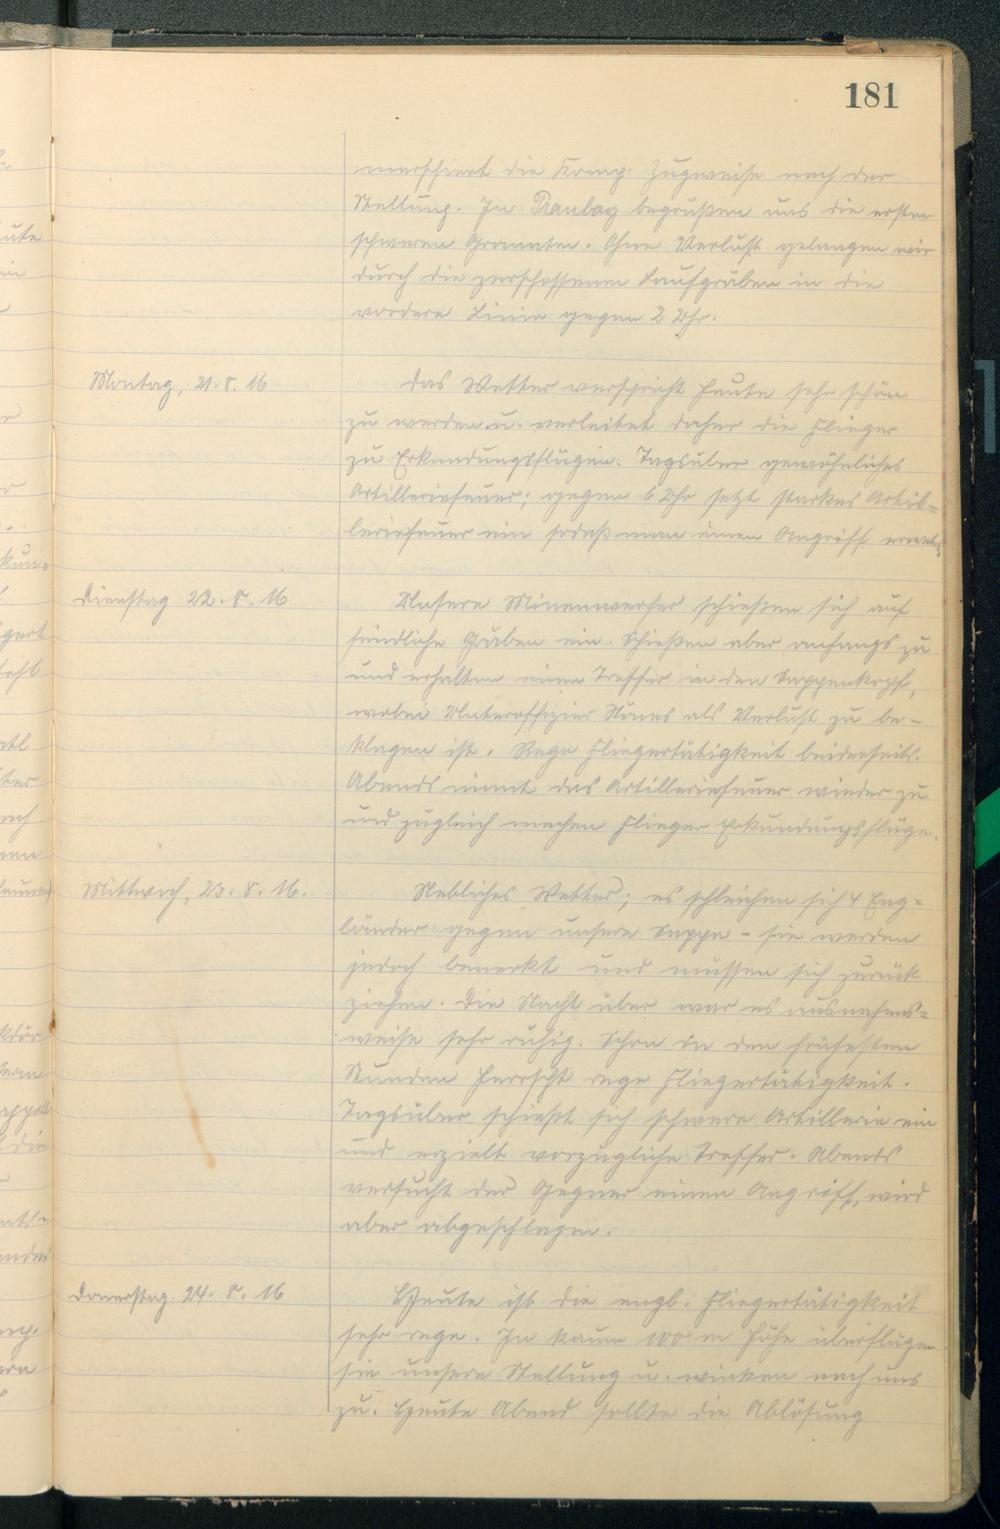 181
marschiert die Komp. zugweise nach der
Stellung. In Ranlay begrüßen uns die ersten
schweren Granaten. Ohne Verlust gelangen wir
durch die zerschossenen Laufgräben in die
vordere Linie gegen 2 Uhr.
Montag, 21. 8. 16
Das Wetter verspricht heute sehr schön
zu werden u. verleitet daher die Flieger
zu Erkundungsflügen. Tagsüber gewöhnliches
Artilleriefeuer; gegen 6 Uhr setzt starkes Artil-
leriefeuer ein sodaß man einen Angriff erwartet
Dienstag 22. 8. 16
Unsere Minenwerfer schießen sich auf
feindliche Gräben ein. Schießen aber anfangs zu
und erhalten einen Treffer in den Sappenkopf,
wobei Unteroffizier als Verlust zu be-
klagen ist. Rege Fliegertätigkeit beiderseits.
Abends nimmt das Artilleriefeuer wieder zu
und zugleich machen Flieger Erkundungsflüge.
Mittwoch, 23. 8. 16.
Nebliches Wetter; es schleichen sich 4 Eng-
länder gegen unsere Sappe - sie werden
jedoch bemerkt und müssen sich zurück
ziehen. Die Nacht über war es ausnahms-
weise sehr ruhig. Schon in den frühesten
Stunden herrscht rege Fliegertätigkeit.
Tagsüber schießt sich schwere Artillerie ein
und erzielt vorzügliche Treffer. Abends
versucht der Gegner einen Angriff, wird
aber abgeschlagen.
Donnerstag. 24. 8. 16
Heute ist die engl. Fliegertätigkeit
sehr rege. In kaum 100 m Höhe überflügen
sie unsere Stellung u. winken nach uns
zu. Heute Abend sollte die Ablösung